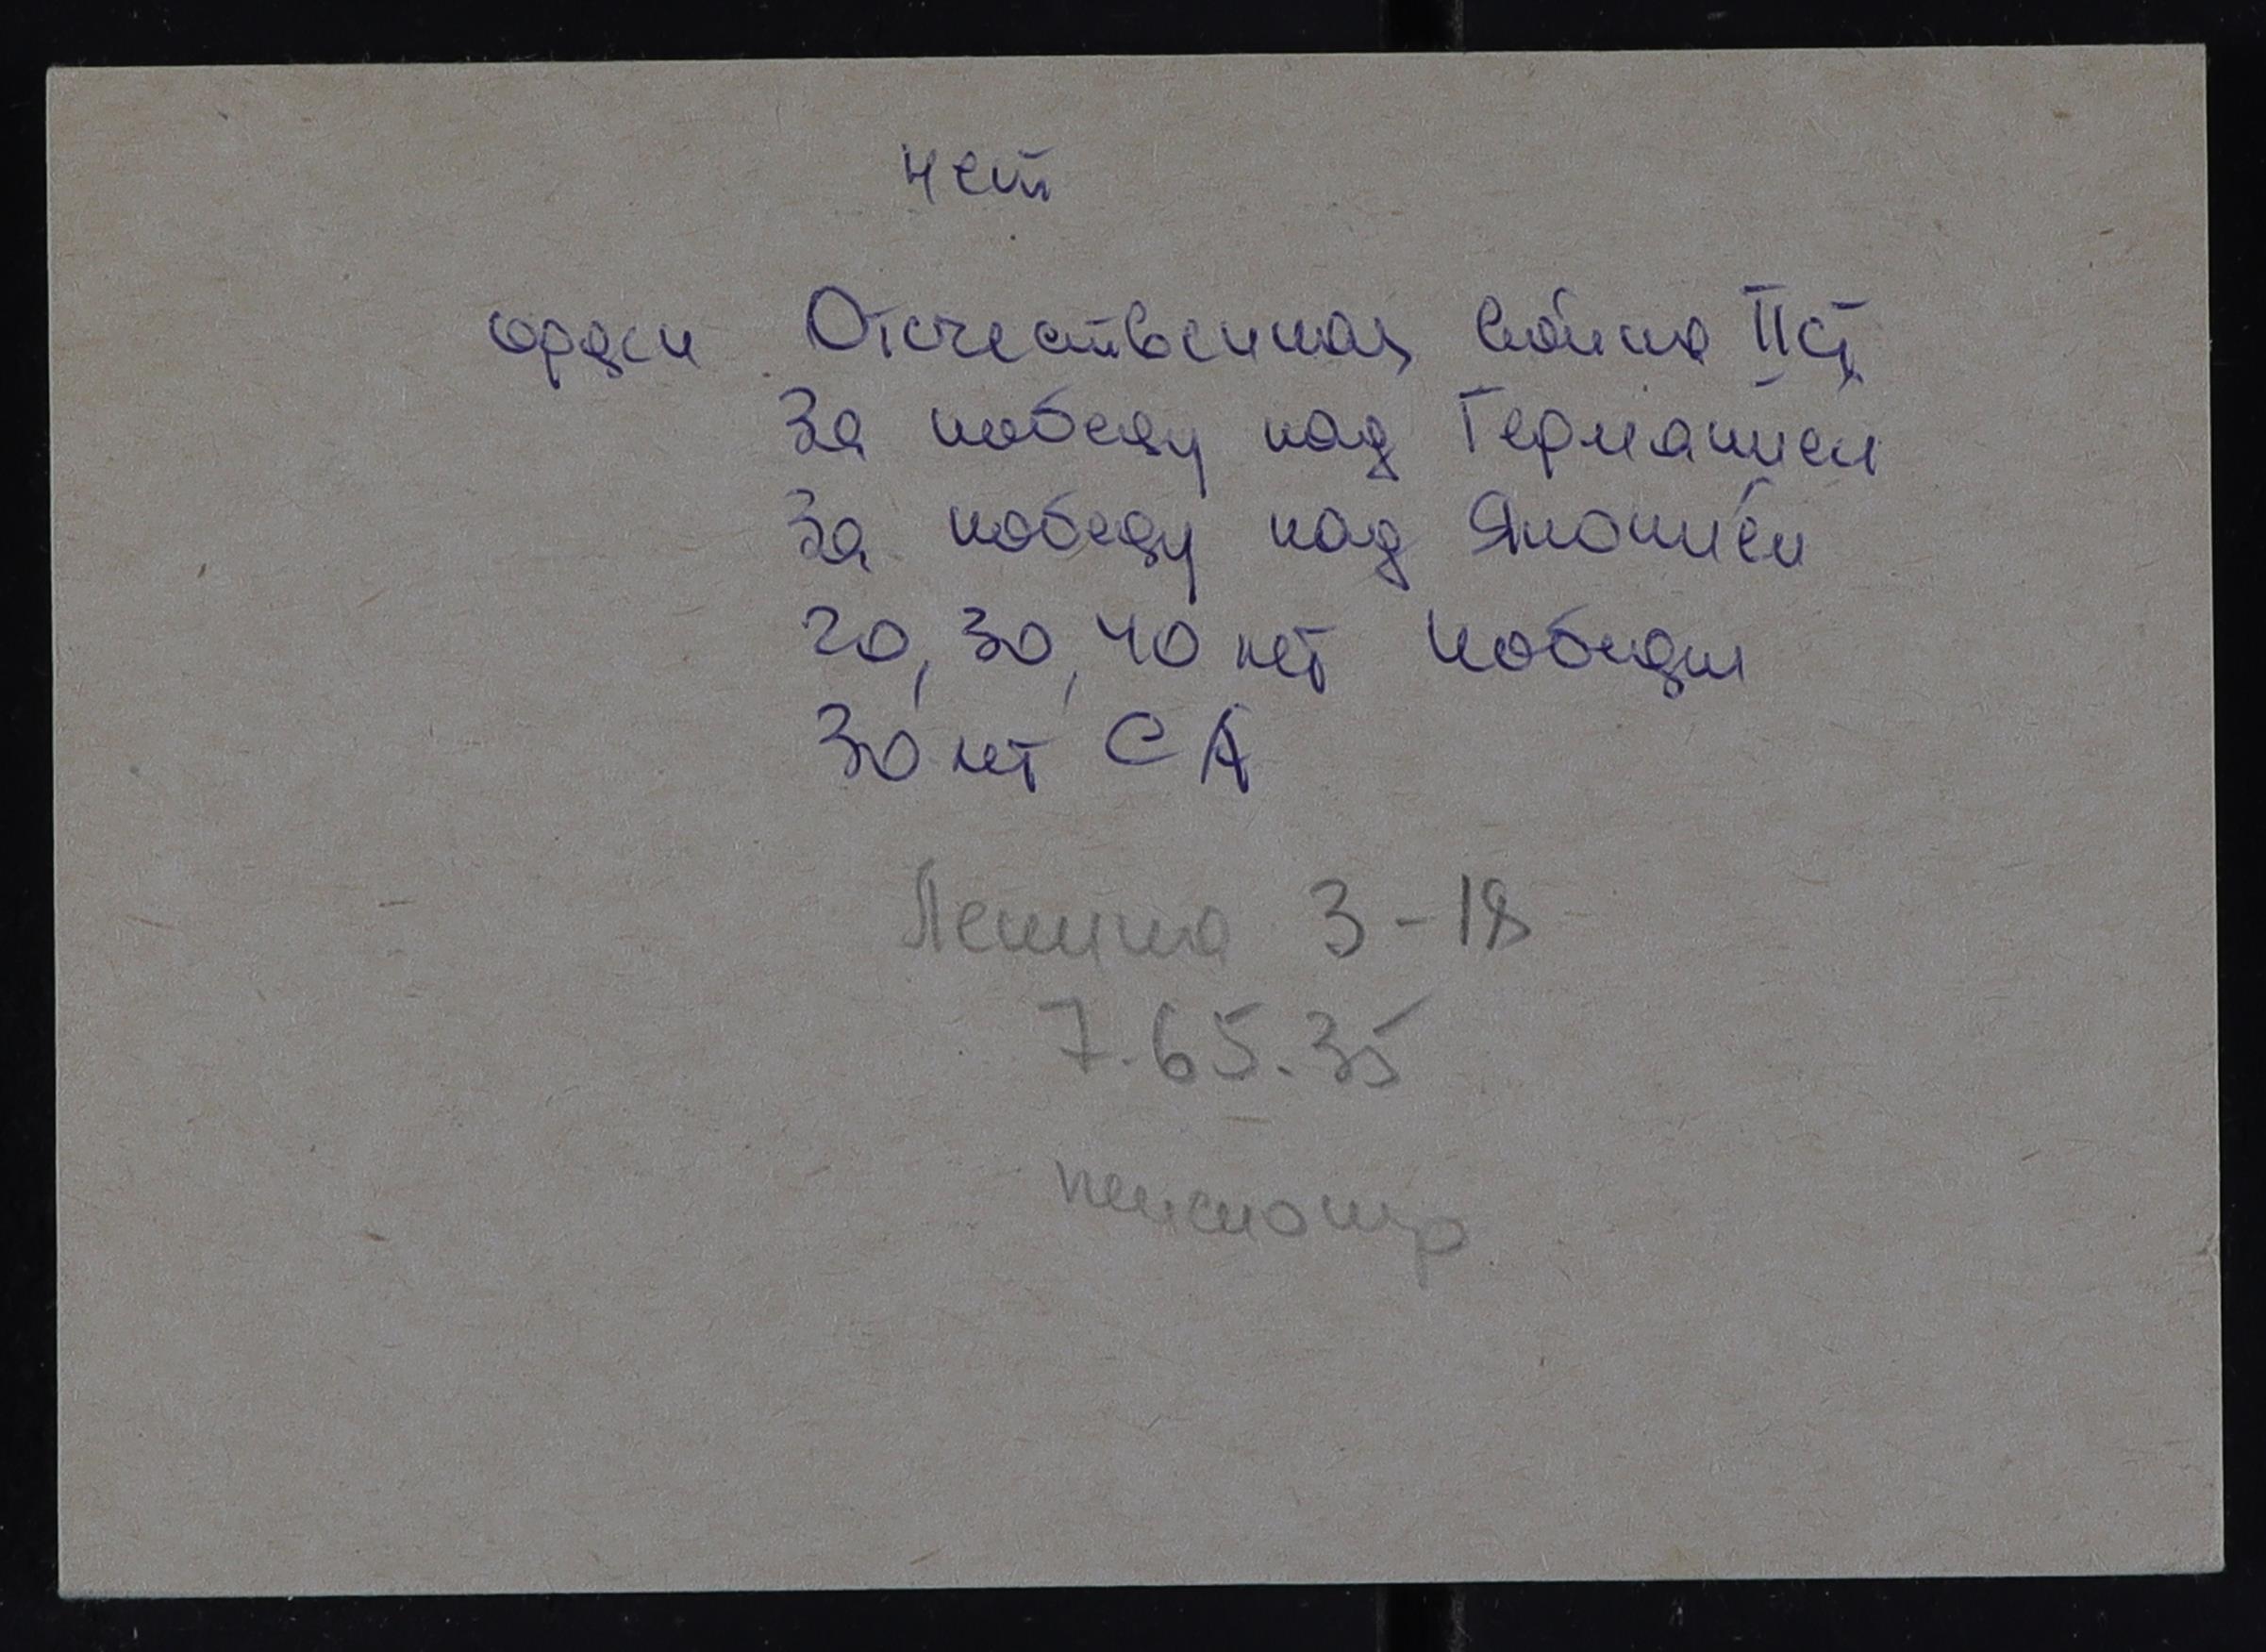 нет
орден Отечественная война II ст
За победу над Германией
За победу над Японией
20, 30, 40 лет победы
30 лет СА
Ленина 3-18
7.65.35
пенсионер